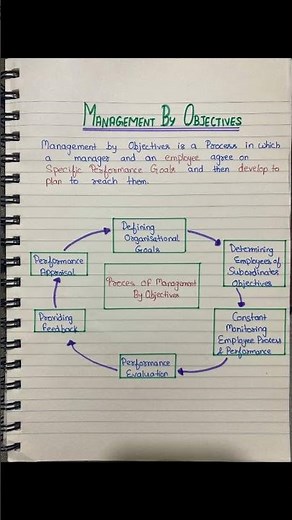 MANAGEMENT BY OBJECTIVES
Management by Objectives is a Process in which
a manager and an employee agree on
Specific Performance Goals and then develop to
plan to reach them.
Defining
Organisational
Goals
Performance
Appraisal
Determining
Employees of
Subordinates
Objectives
Process of Management
By Objectives
Providing
Feedback
Constant
Monitoring
Employee Process
& Performance
Performance
Evaluation